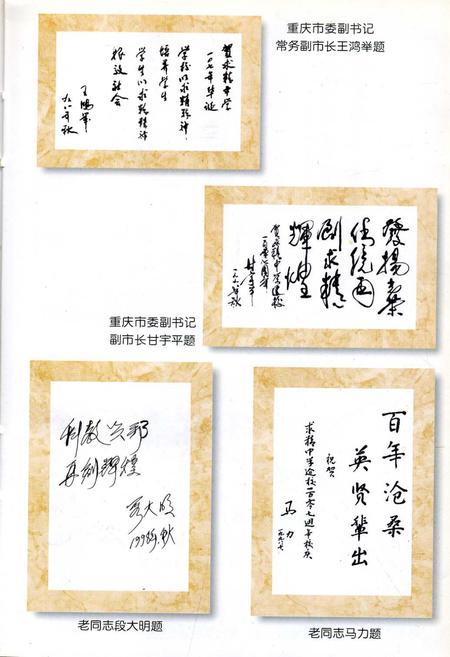 重庆市委副书记
常务副市长王鸿举题
贺求精中学
一〇七年华诞
学校以求精精神
培养学生
学生以求精精神
报效社会
王鸿举
九八年秋
发扬
传统再
创求精
辉煌
贺求精中学建校
一百零七周年
甘宇平
一九九八年秋
重庆市委副书记
副市长甘宇平题
科教兴邦
再创辉煌
段大明
1998年秋
老同志段大明题
百年沧桑
英贤辈出
祝贺
求精中学建校一百零七周年校庆
马力
一九九八.七
老同志马力题